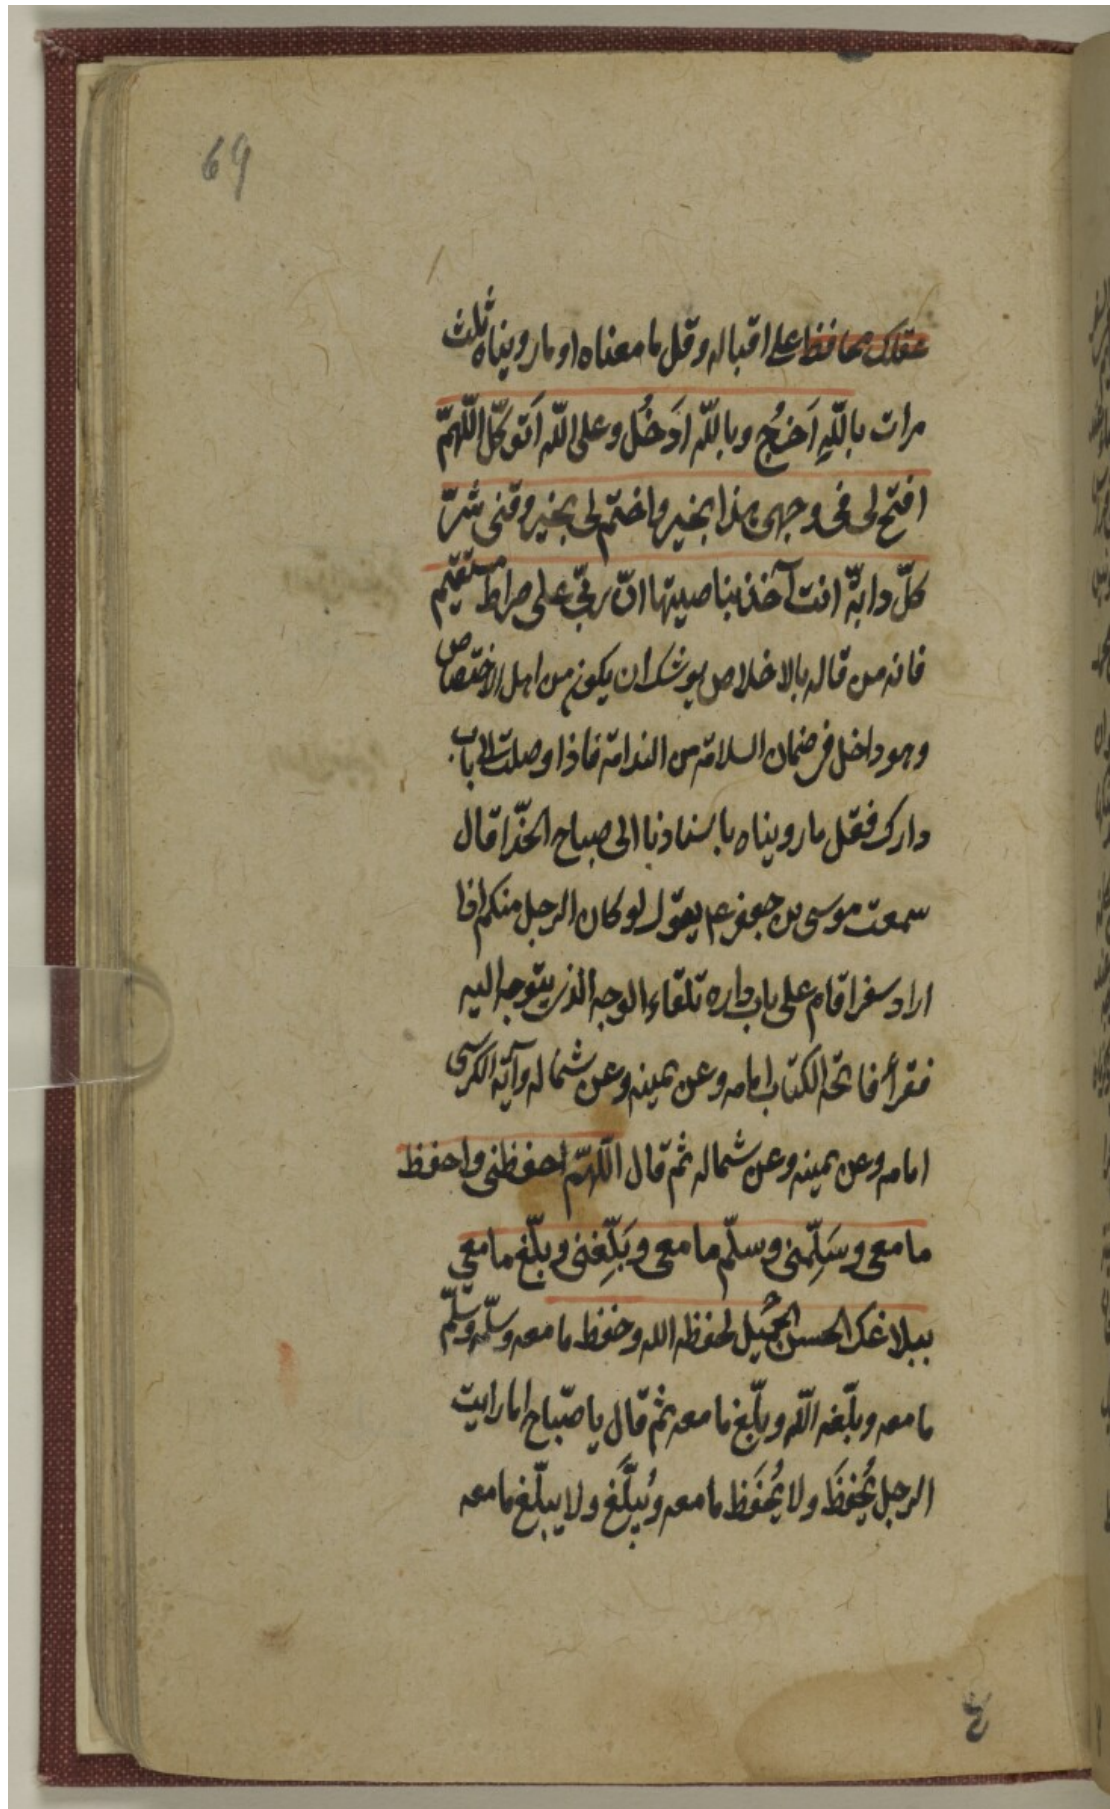 69
عقلك محافظ على اقباله وقل ما معناه او ما رويناه ثلث
مرات باللّهِ اَخرُج وباللّه اَدخُل وعلى اللّه اَتوكّل اللّهمّ
افتح لى فى وجهى هذا بخير واختم لى بخير وقنى شرّ
كلّ دابّة انت آخذ بناصيتها انّ ربّى على صراط مستقيم
فانه من قاله بالاخلاص يوشك ان يكون من اهل الاختصاص
وهو داخل فى ضمان السلامة من الندامة فاذا وصلت الى باب
دارك فقل ما رويناه باسنادنا الى صباح الحذّا قال
سمعت موسى بن جعفر عم يقول لو كان الرجل منكم اذا
اراد سفرا قام على باب داره تلقاء الوجه الذى يتوجه اليه
فقرأ فاتحة الكتاب امامه وعن يمينه وعن شماله وآية الكرسى
امامه وعن يمينه وعن شماله ثم قال اللّهمّ احفظنى واحفظ
ما معى وسَلِّمنى وسلّم ما معى وبَلِّغنى وبلّغ ما معى
ببلاغك الحسن الجميل لحفظه الله وحفظ ما معه وسلّمه وسلّم
ما معه وبلّغه اللّه وبلّغ ما معه ثم قال يا صبّاح اما رايت
الرجل يُحفَظ ولا يُحفَظ ما معه ويُبلَّغ ولا يبلّغ ما معه